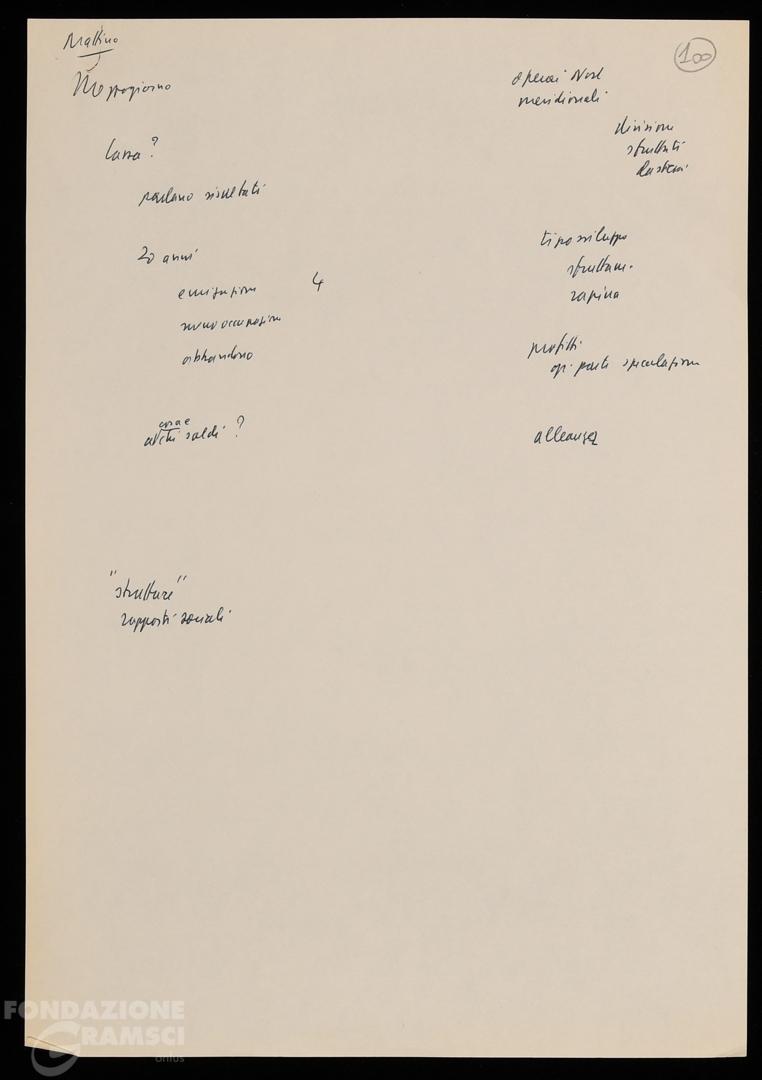 Mattino
Mezzogiorno
Cassa?
parlano risultati
20 anni
emigrazione 4
sottoccupazione
abbandono
cosa è
anche soldi?
"strutture"
rapporti sociali
100
operai Nord
meridionali
divisione
sfruttati
tipo sviluppo
sfruttam.
rapina
profitti
parte speculazione
alleanza
FONDAZIONE
GRAMSCI
onlus